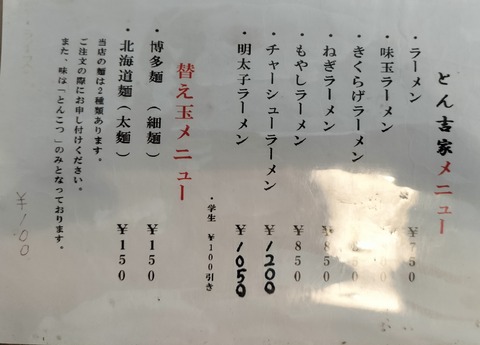 とん吉家メニュー
・ラーメン ￥750
・味玉ラーメン
・きくらげラーメン
・ねぎラーメン ￥850
・もやしラーメン ￥850
・チャーシューラーメン ￥1200
・明太子ラーメン ￥1050
・学生 ￥100引き
替え玉メニュー
・博多麺（細麺） ￥150
・北海道麺（太麺） ￥150
当店の麺は2種類あります。
ご注文の際にお申し付けください。
また、味は「とんこつ」のみとなっております。
￥100